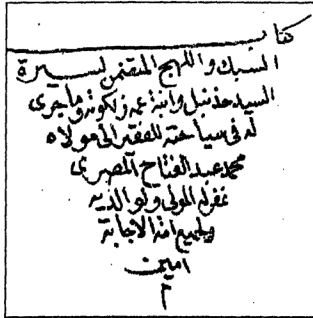 كتاب
السبك واللهج المتضمن لسيرة
السيد حذنبل وابنة عمه زلكونة وما جرى
له في سياحته للفقير الى مولاه
محمد عبد الفتاح المصري
غفر له المولى ولوالديه
ولجميع امة الاجابة
امين
م